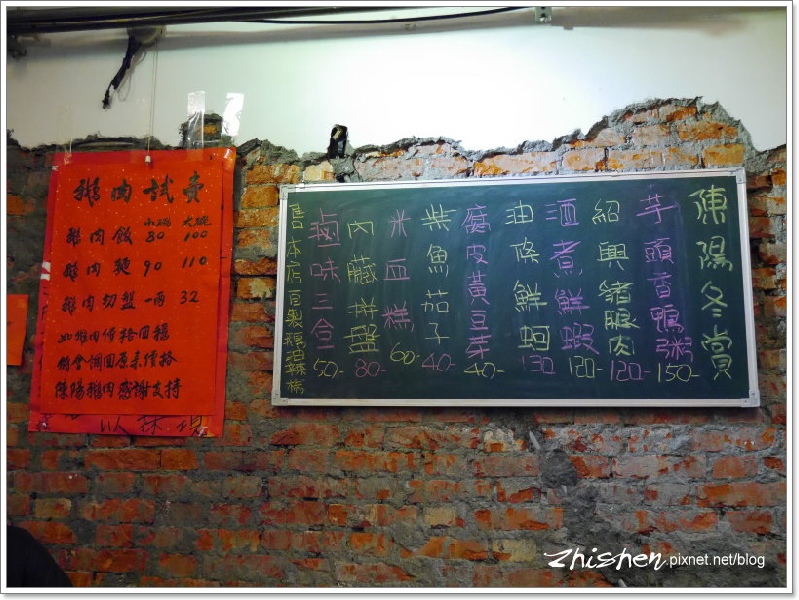 鵝肉試賣
小碗 大碗
鵝肉飯 80 100
鵝肉麵 90 110
鵝肉切盤一兩 32
如鵝肉價格回穩
將會調回原來價格
陳陽鵝肉感謝支持
陳陽冬賞
芋頭香鴨粥 150-
紹興豬腳肉 120-
酒煮鮮蝦 120-
油條鮮蚵 130
腐皮黃豆芽 40-
柴魚茄子 40-
米血糕 60-
內臟拼盤 80-
鹵味三合 50-
售本店自製
zhishen.pixnet.net/blog